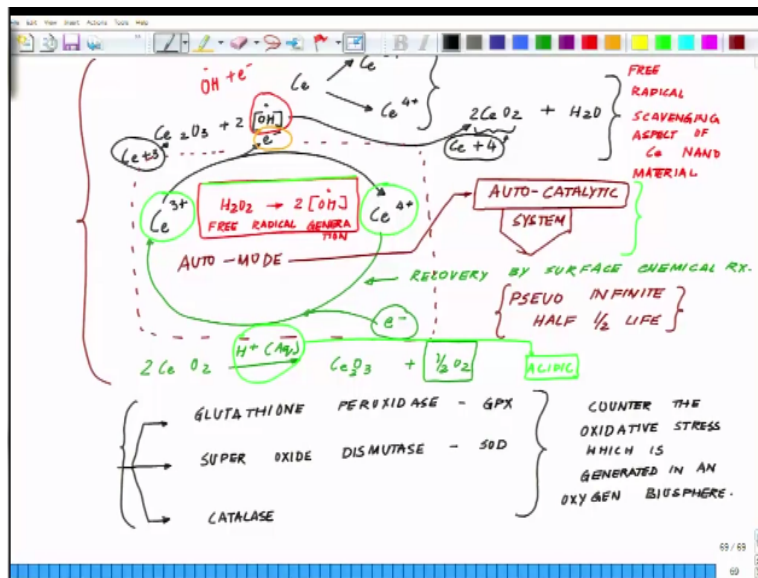 Edit View Insert Actions Tools Help
B I
ȮH + e⁻
Ce
Ce⁴⁺
Ce₂O₃ + 2 [ȮH]
e⁻
2CeO₂ + H₂O
Ce+3
Ce+4
FREE
RADICAL
SCAVENGING
ASPECT OF
Ce NANO
MATERIAL
Ce³⁺
H₂O₂ → 2 [ȮH]
FREE RADICAL GENERA
TION
Ce⁴⁺
AUTO-CATALYTIC
SYSTEM
AUTO-MODE
RECOVERY BY SURFACE CHEMICAL RX.
e⁻
PSEUO INFINITE
HALF ½ LIFE
2CeO₂
H⁺ (Aq)
Ce₂O₃ + ½O₂
ACIDIC
GLUTATHIONE PEROXIDASE - GPX
SUPER OXIDE DISMUTASE - SOD
CATALASE
COUNTER THE
OXIDATIVE STRESS
WHICH IS
GENERATED IN AN
OXYGEN BIOSPHERE.
69 / 69
69